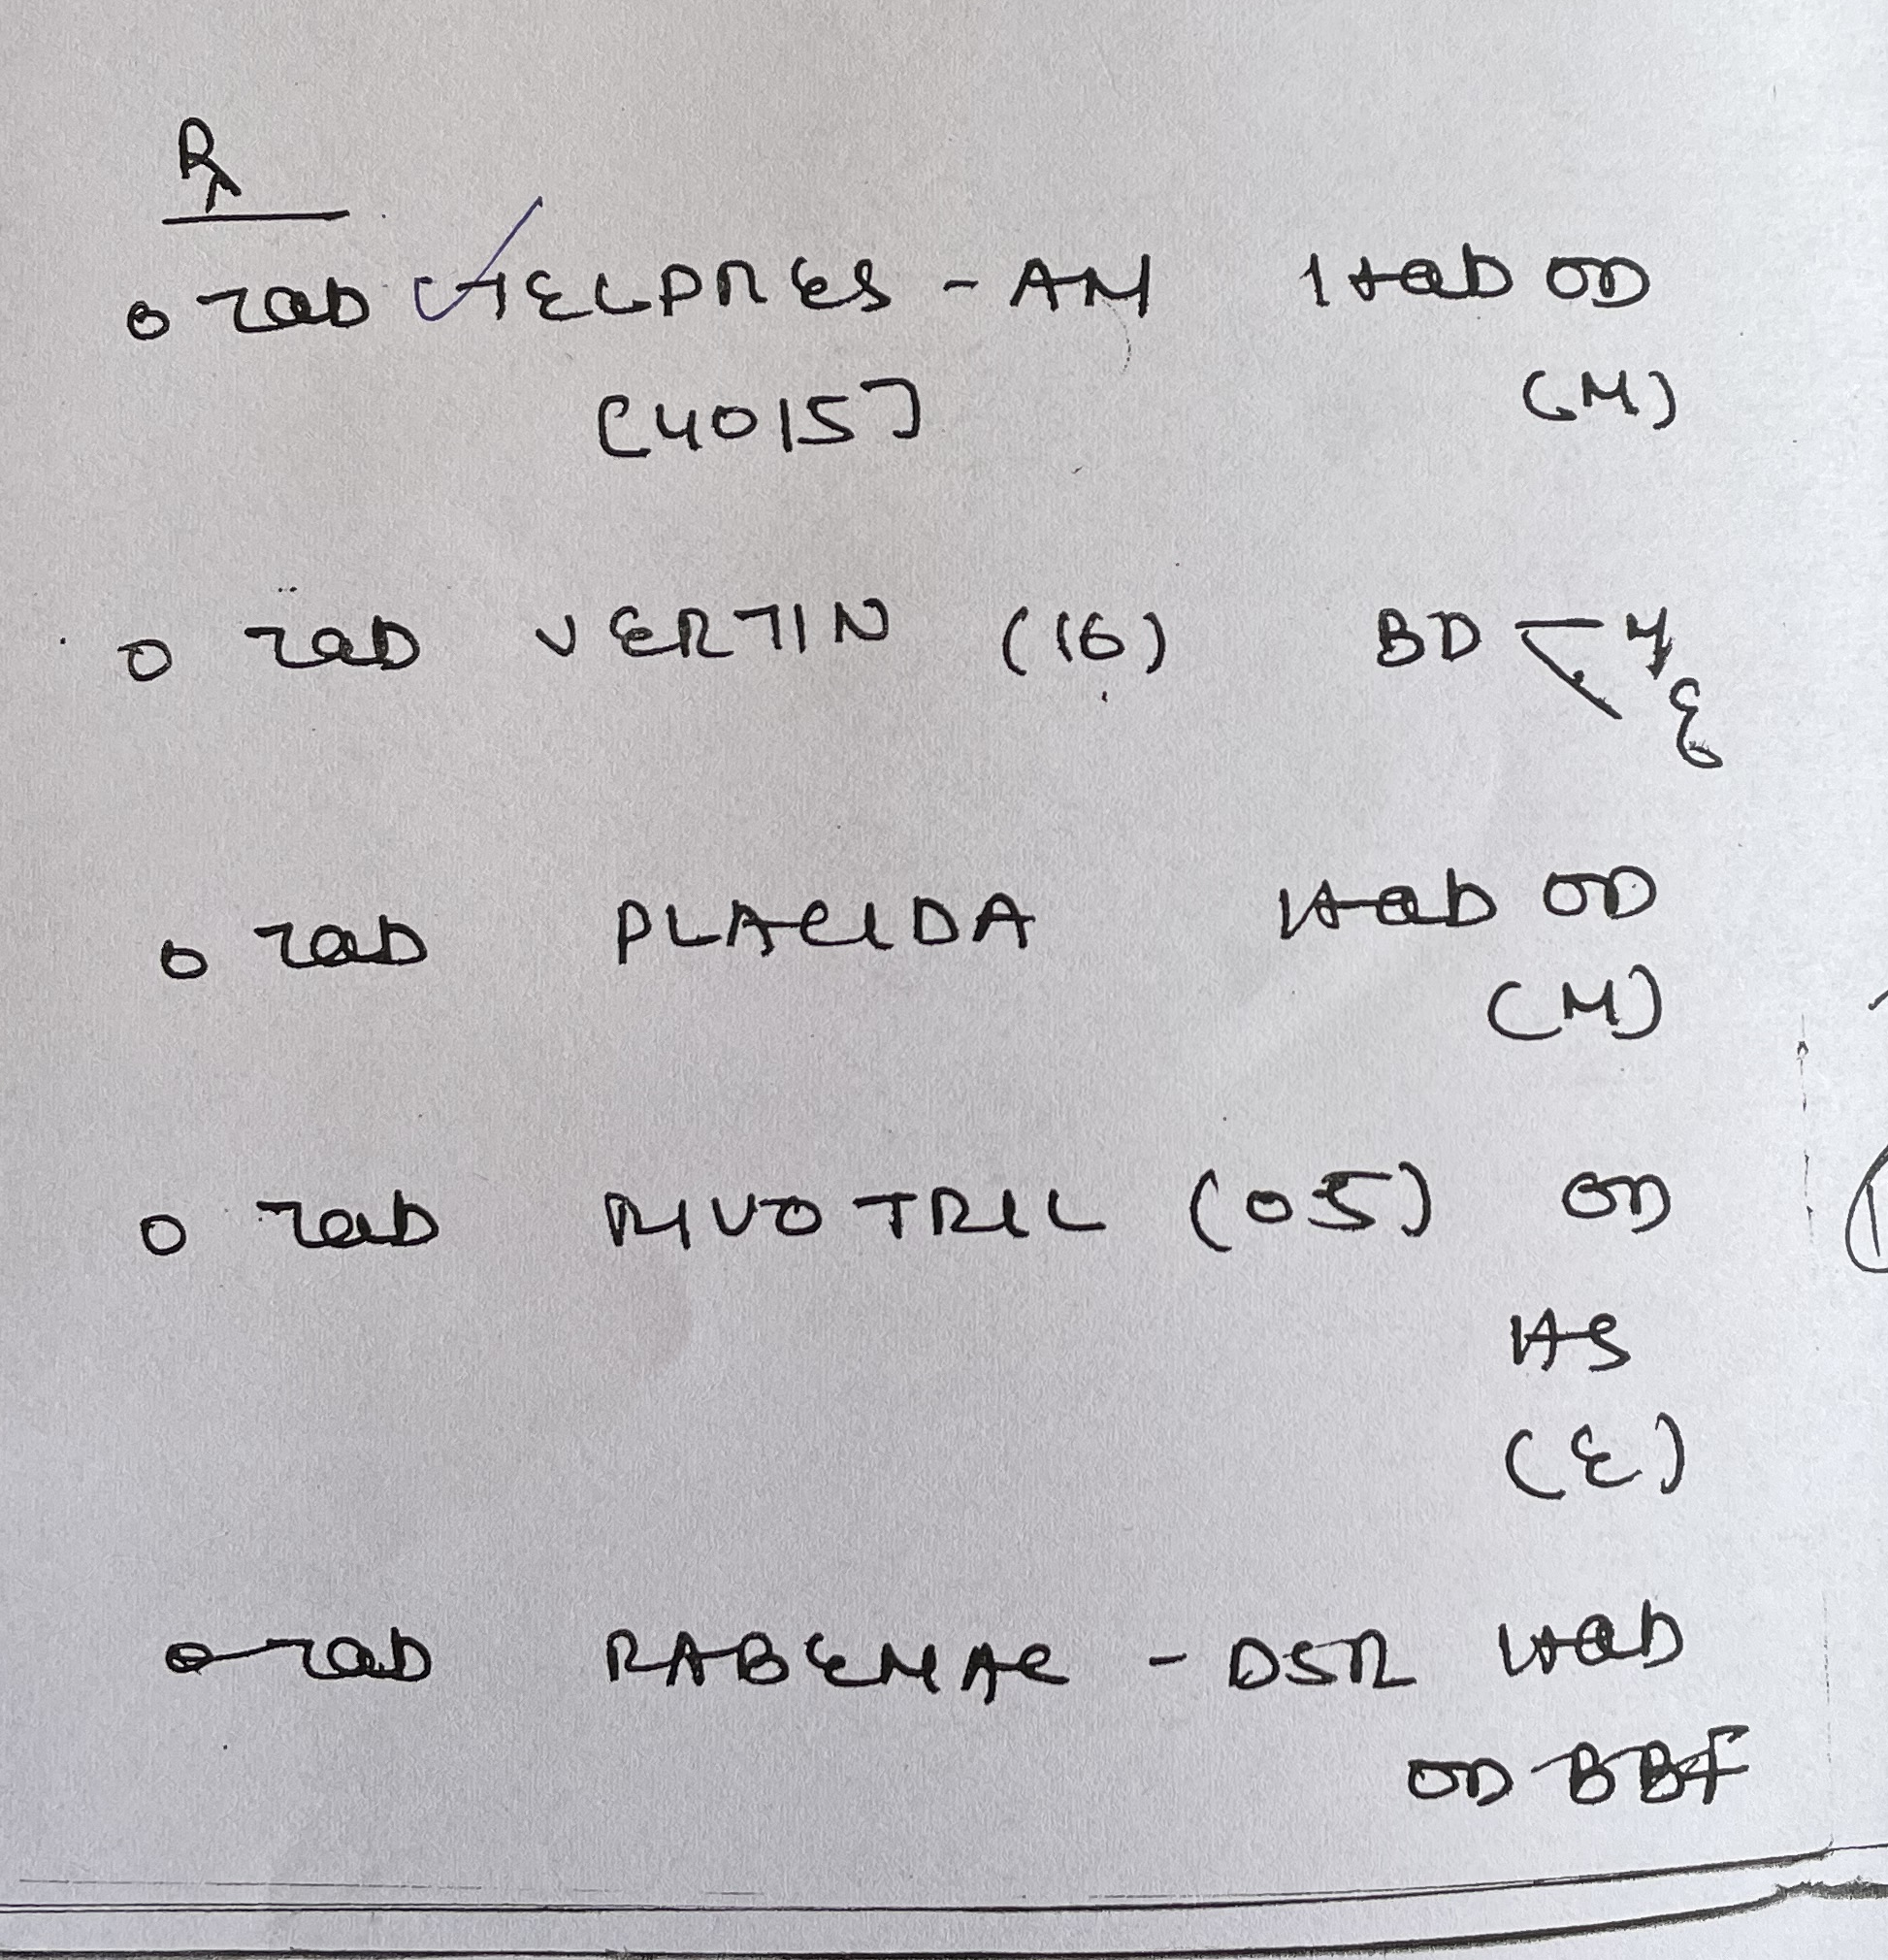 Rx
o Tab TELPRES - AM 1 tab OD
[40/5] (M)
o Tab VERTIN (16) BD < M
E
o Tab PLACIDA 1 tab OD
(M)
o Tab RIVOTRIL (0.5) OD
HS
(E)
o Tab RABEMAC - DSR 1 tab
OD BBF